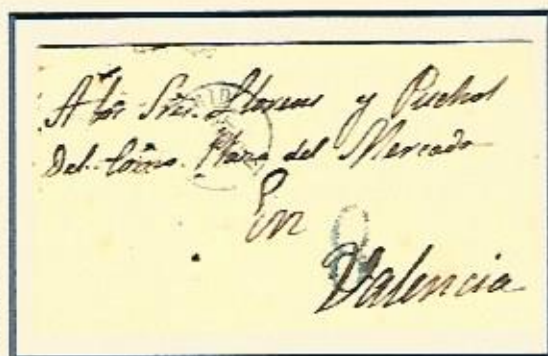 A los Sres. Llorens y Puchol
Del Como. Plaza del Mercado
En
Valencia